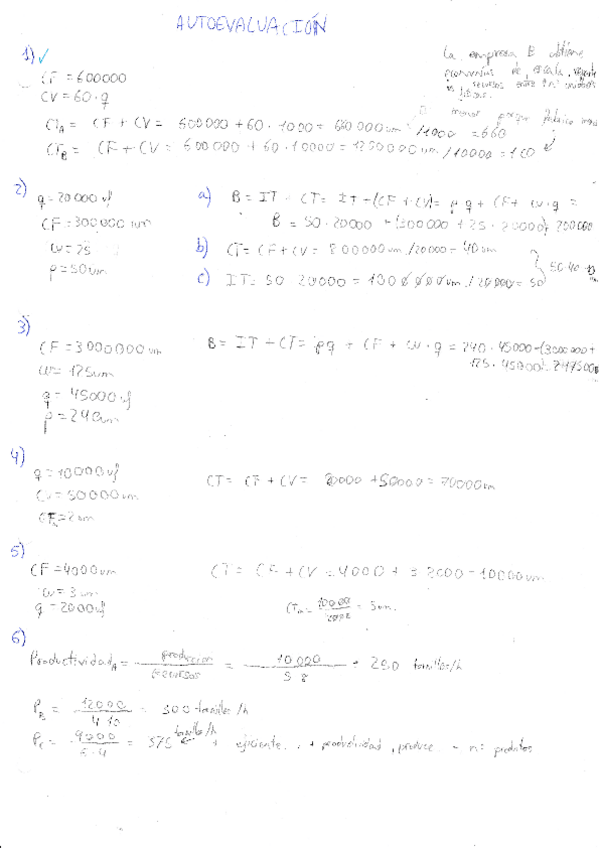 AUTOEVALUACIÓN
1) ✓
CF = 600000
CV = 60 · q
La empresa B obtiene
economías de escala, reparte
recursos entre
CT_A = CF + CV = 600000 + 60 · 1000 = 660000 um /1000 = 660
CT_B = CF + CV = 600000 + 60 · 10000 = 1200000 um /10000 = 120
2)
q = 20000 uf
CF = 300000 um
cv = 25
p = 50 um
a) B = IT - CT = IT - (CF + CV) = p q + CF + cv · q =
B = 50 · 20000 - (300000 + 25 · 20000) 200000
b) CT = CF + CV = 800000 um /20000 = 40 um
c) IT = 50 20000 = 1000000 um /20000 = 50
50-40
3)
CF = 3000000 um
cv = 125 um
q = 45000 uf
p = 240 um
B = IT - CT = pq - CF + cv · q = 240 · 45000 - (3000000 +
125 · 45000)
4)
q = 10000 uf
CV = 50000 um
CF = 2 um
CT = CF + CV = 20000 + 50000 = 70000 um
5)
CF = 4000 um
cv = 3 um
q = 2000 uf
CT = CF + CV = 4000 + 3 2000 = 10000 um
CTu = 10000 / 2000 = 5 um
6)
Productividad_A = producción / recursos = 10.000 / 5 8 = 250 tornillos/h
P_B = 12000 / 4 10 = 300 tornillos/h
P_C = 9000 / 6·4 = 375 tornillos/h ← + eficiente + productividad, produce - nº productos